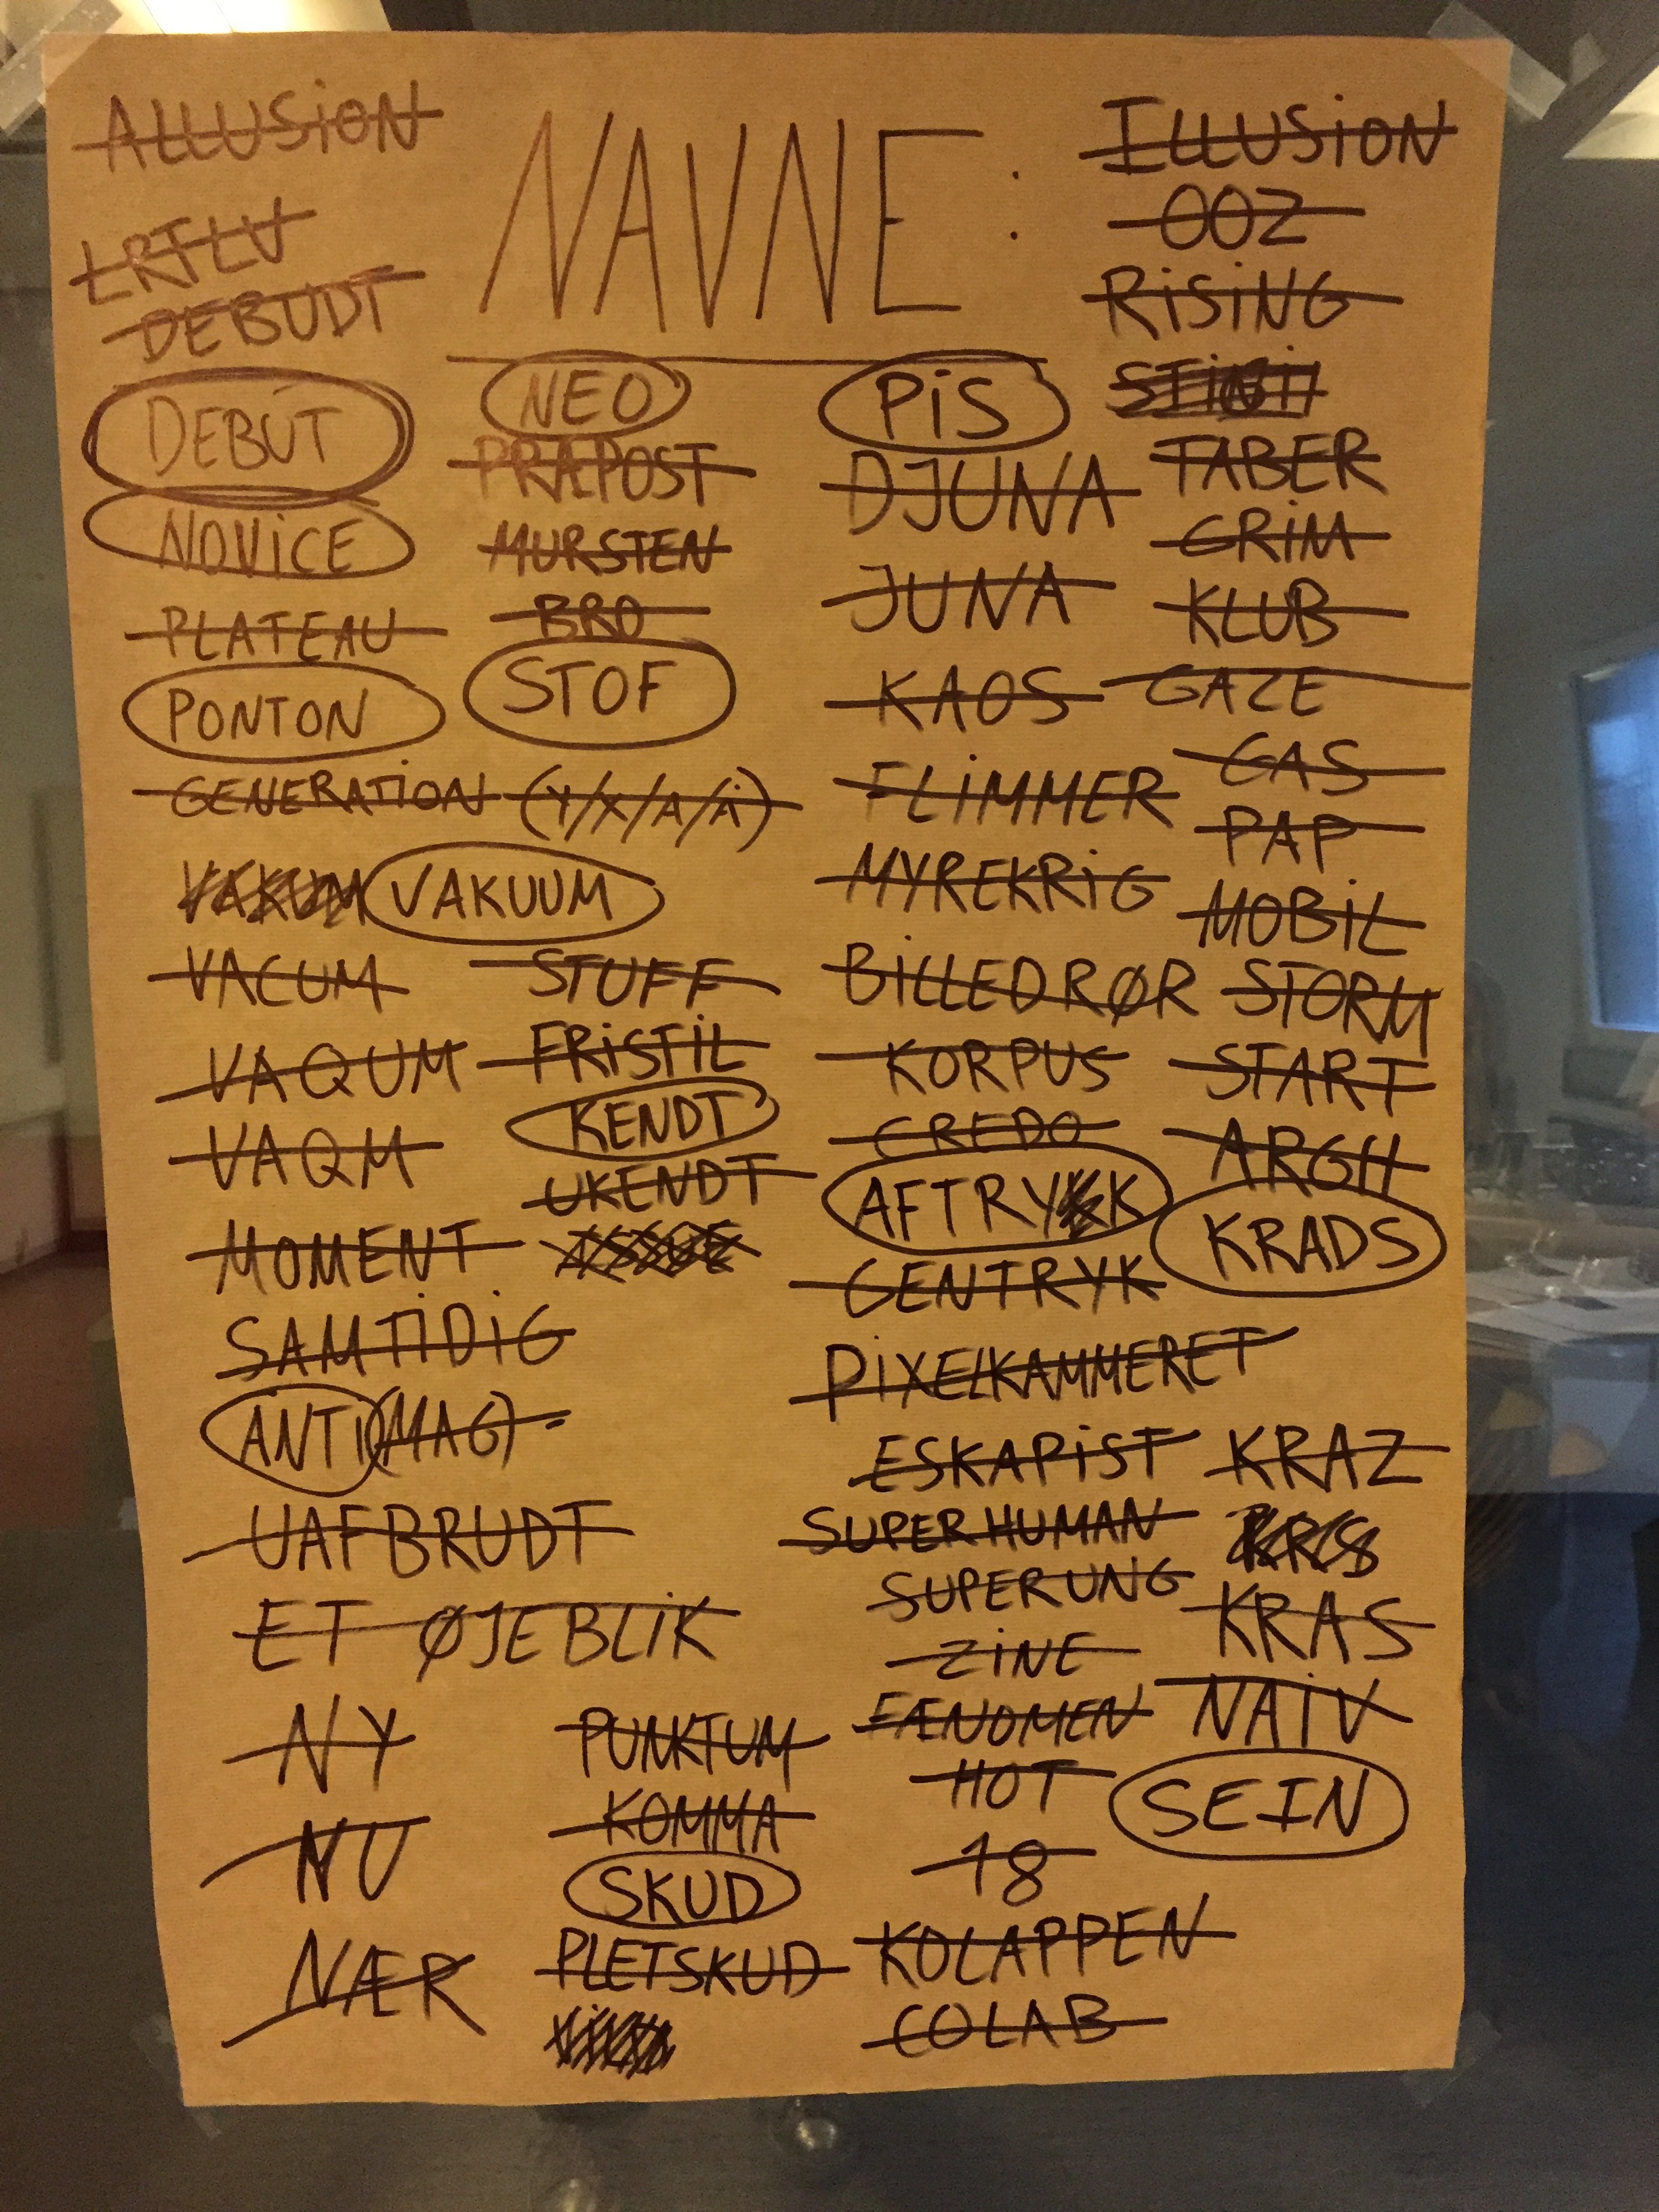 NAVNE:
ALLUSiON
LRTLV
DEBUDT
DEBUT
NOViCE
PLATEAU
PONTON
GENERATiON (Y/X/A/Å)
VAKUM VAKUUM
VACUM
VAQUM
VAQM
MOMENT
SAMTiDiG
ANTi(MAG)-
UAFBRUDT
ET ØJEBLiK
NY
NU
NÆR
NEO
PRÆPOST
MURSTEN
BRO
STOF
STUFF
FRiSTiL
KENDT
UKENDT
PUNKTUM
KOMMA
SKUD
PLETSKUD
PiS
DJUNA
JUNA
KAOS
FLiMMER
MYREKRiG
BiLLEDRØR
KORPUS
CREDO
AFTRYK
GENTRYK
PiXELKAMMERET
ESKAPiST
SUPERHUMAN
SUPERUNG
ZiNE
FÆNOMEN
HOT
18
KOLAPPEN
COLAB
ILLUSiON
OOZ
RiSiNG
TABER
GRiM
KLUB
GAZE
GAS
PAP
MOBiL
STORM
START
ARGH
KRADS
KRAZ
KRAS
NAiV
SEIN